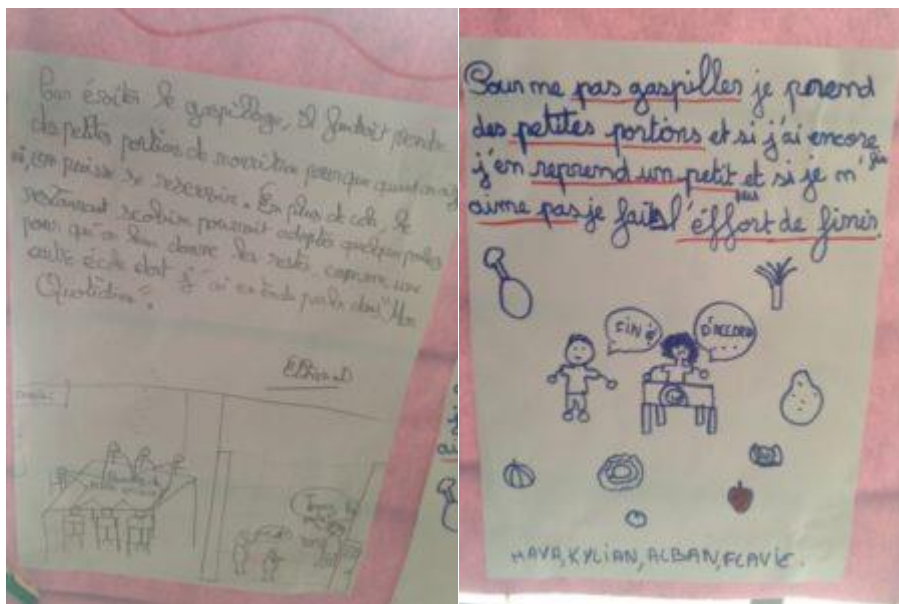 Pour éviter le gaspillage, il faudrait prendre
des petites portions de nourriture pour que quand on a
on puisse se resservir. En plus de cela, le
restaurant scolaire pourrait adopter quelques poules
pour qu'on leur donne les restes, comme une
autre école dont j'ai entendu parler dans "Mon
Quotidien".
Pour ne pas gaspiller je prend
des petites portions et si j'ai encore
j'en reprend un petit peu et si je n'
aime pas je fais l'éffort de finir.
FINI
D'ACCORD
MAVA, KYLIAN, ALBAN, FLAVIE.